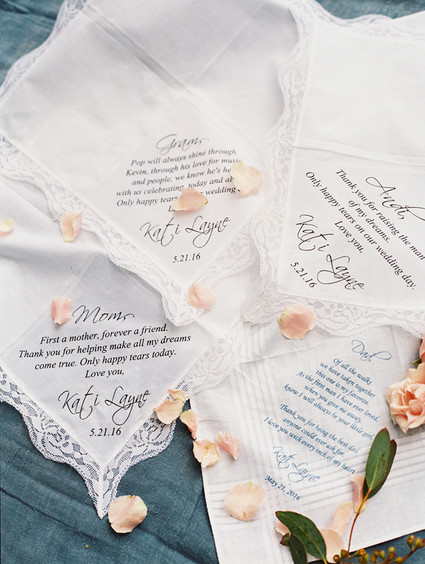 Gram,
Pop will always shine through
Kevin, through his love for music
and people, we know he's he
with us celebrating, today and al
Only happy tears on our wedding
Kati Layne
5.21.16
Andi,
Thank you for raising the man
of my dreams.
Only happy tears on our wedding day.
Love you,
Kati Layne
5.21.16
Mom,
First a mother, forever a friend.
Thank you for helping make all my dreams
come true. Only happy tears today.
Love you,
Kati Layne
5.21.16
Dad,
Of all the walks
we have taken together,
this one is my favorite.
As the first man I have ever loved,
when you give me away,
know I will always be your little girl.
Thank you for being the best dad,
anyone could ever ask for.
I love you with every inch of my heart.
Kati Layne
May 21, 2016